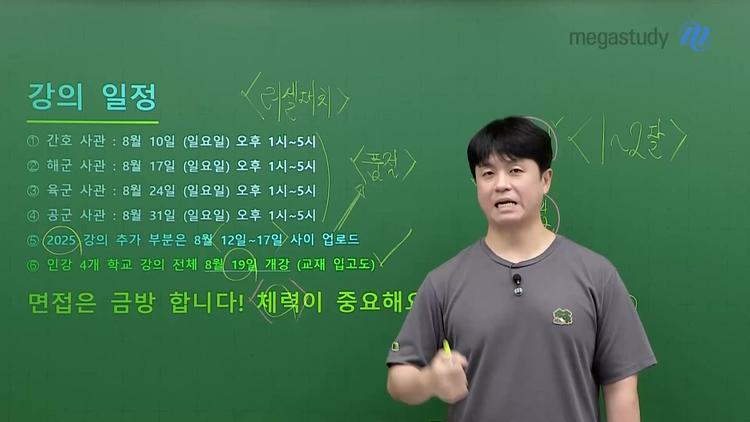 megastudy
강의 일정
<러셀대치>
<1~2팔>
① 간호 사관 : 8월 10일 (일요일) 오후 1시~5시
② 해군 사관 : 8월 17일 (일요일) 오후 1시~5시
<품절>
③ 육군 사관 : 8월 24일 (일요일) 오후 1시~5시
④ 공군 사관 : 8월 31일 (일요일) 오후 1시~5시
⑤ 2025 강의 추가 부분은 8월 12일~17일 사이 업로드
⑥ 인강 4개 학교 강의 전체 8월 19일 개강 (교재 입고도)
면접은 금방 합니다! 체력이 중요해요